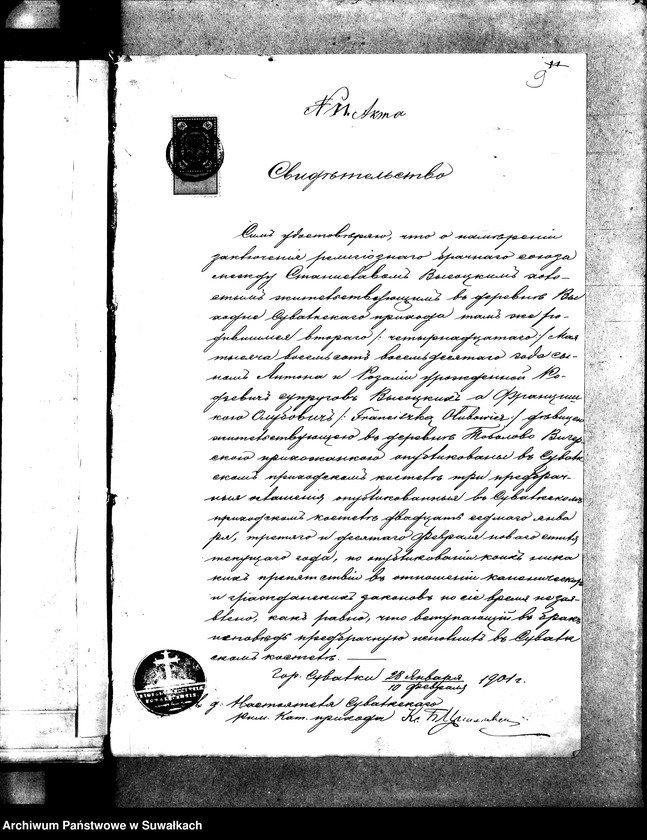 9
№ 11. Акта
Свидѣтельство
Симъ удостовѣряю, что о намѣреніи
заключенія религіознаго брачнаго союза
между Станиславомъ Высоцкимъ холо-
стымъ жительствующимъ въ деревнѣ
Сувалкскаго прихода тамъ же ро-
дившимся втораго /: четырнадцатаго :/ Мая
тысяча восемьсотъ восемьдесятаго года сы-
номъ Антона и Розаліи урожденной
супруговъ Высоцкихъ а Францишкою
Олубовичъ /: Franciszką Ołubowicz :/ дѣвицею
жительствующею въ деревнѣ Тоболово Вигер-
скою прихожанкою опубликованы въ Сувалк-
скомъ приходскомъ костелѣ три предбрач-
ныя оглашенія опубликованныя въ Сувалкскомъ
приходскомъ костелѣ двадцать седмаго янва
ря, третяго и десятаго Февраля новаго стиля
текущаго года, по опубликованіи коихъ ника
кихъ препятствій въ отношеніи каноническихъ
и гражданскихъ законовъ по сіе время не зая-
влено, какъ равно, что вступающій въ бракъ
исповѣдь предбрачную исполнилъ въ Сувалк
скомъ костелѣ.
Гор. Сувалки 28 Января / 10 Февраля 1901 г.
д. Настоятеля Сувалкскаго
рим. Кат. прихода Кс. Б.
Archiwum Państwowe w Suwałkach